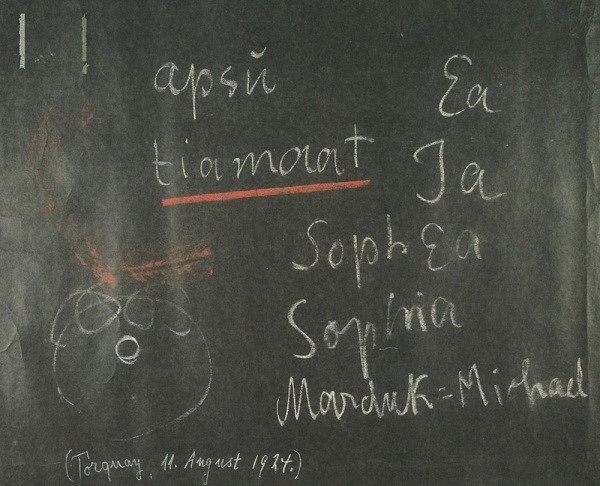 apsŭ
tiamaat
Ea
Ia
SophEa
Sophia
Marduk=Michael
(Torquay, 11. August 1924.)